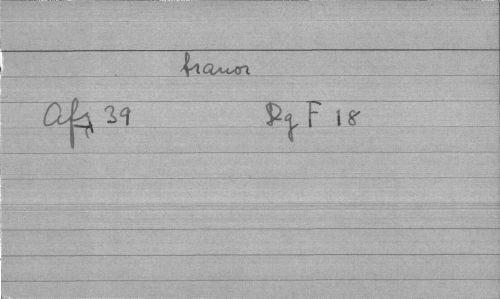 tranor
Afz 39 Rg F 18